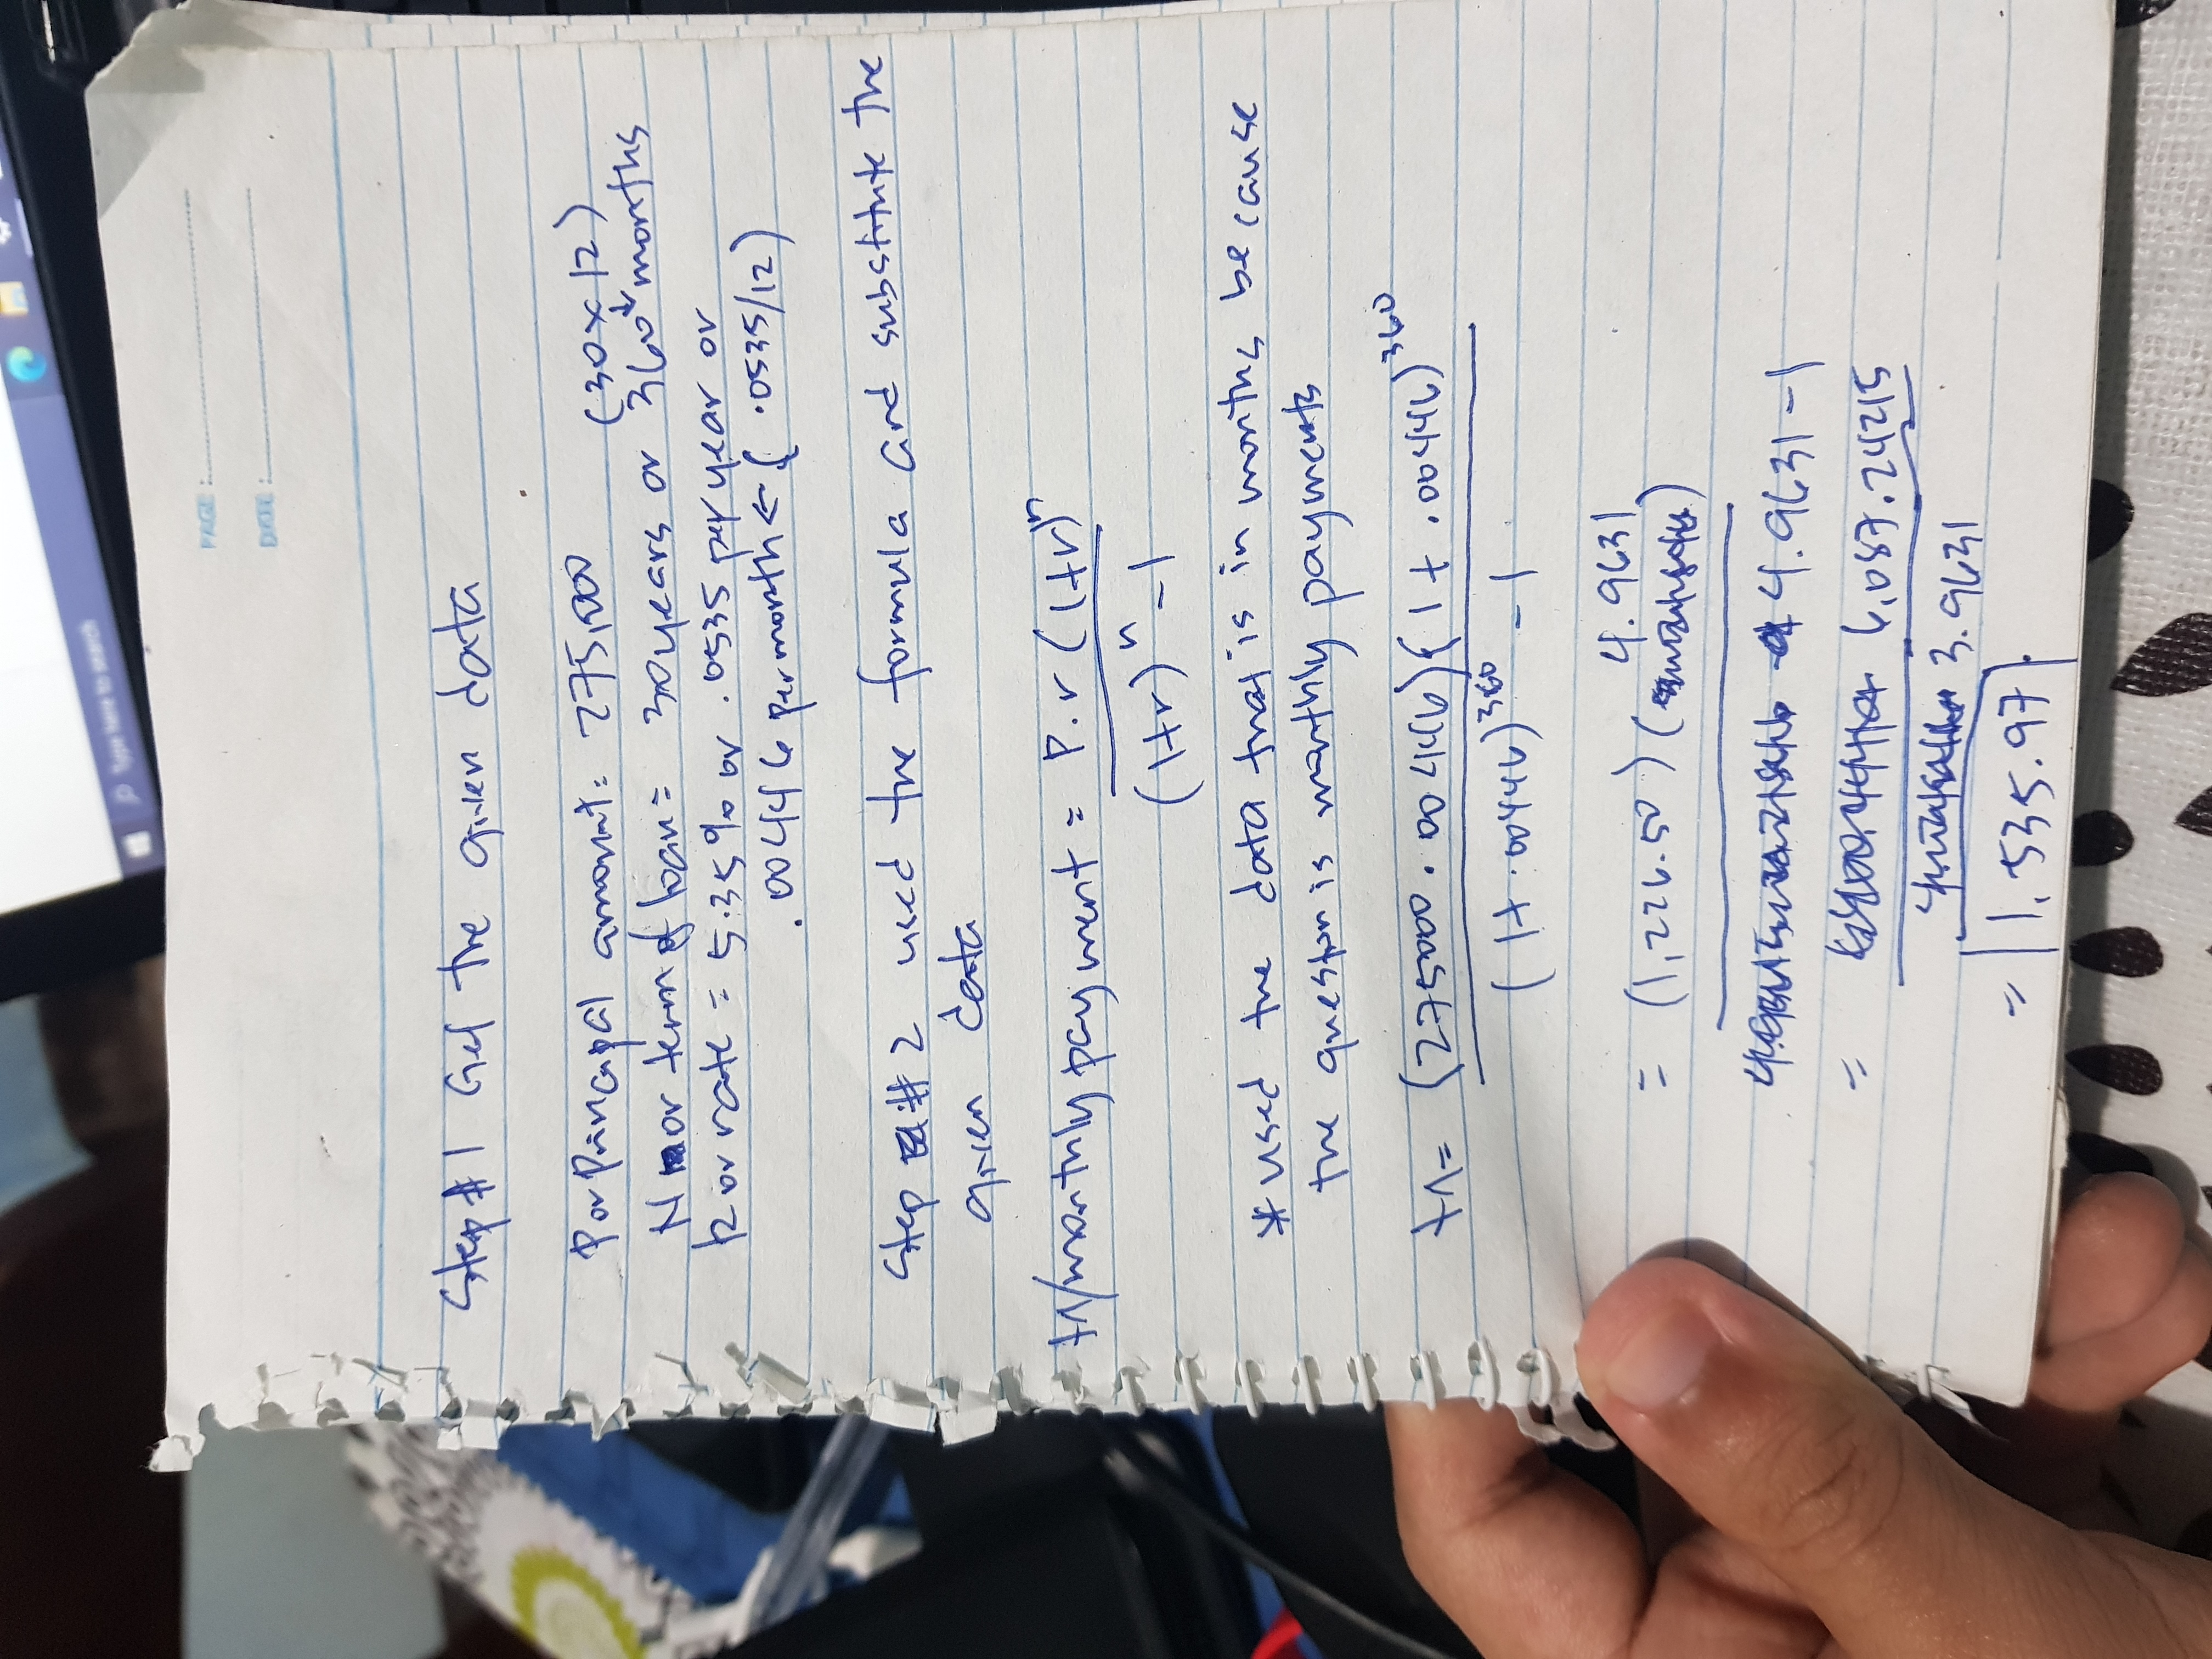 PAGE :
DATE :
Type here to search
Step #1 Get the given data
P or Principal amount: 275,000 (30x12)
N or term of loan = 30 years or 360 months
R or rate = 5.35% or .0535 per year or
.00446 per month ← (.0535/12)
Step #2 used the formula and substitute the
given data
M/monthly payment = P.r (1+r)ⁿ
(1+r)ⁿ - 1
* used the data that is in months because
the question is monthly payments
M = (275000 . 00446)(1 + .00446)³⁶⁰
(1 + .00446)³⁶⁰ - 1
4.9631
= (1,226.50) (
4.9631 - 1
= 6,087.24215
3.9631
= 1,535.97